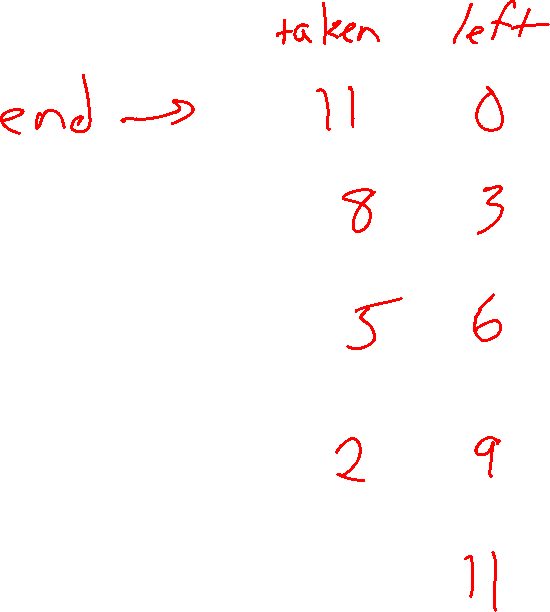 taken left
end → 11 0
8 3
5 6
2 9
11